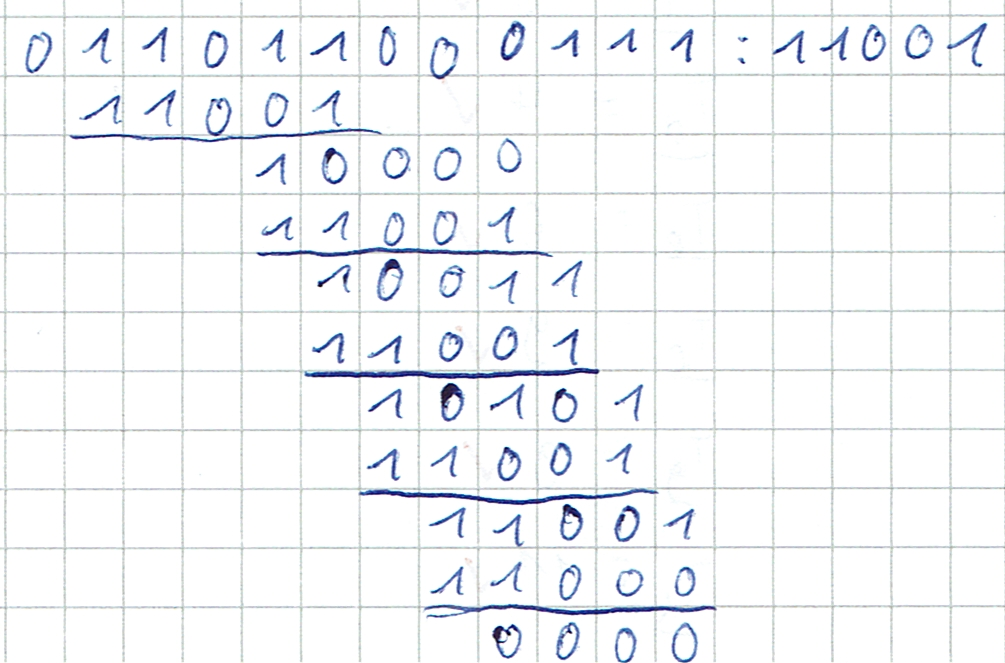 0 1 1 0 1 1 0 0 0 1 1 1 : 1 1 0 0 1
1 1 0 0 1
1 0 0 0 0
1 1 0 0 1
1 0 0 1 1
1 1 0 0 1
1 0 1 0 1
1 1 0 0 1
1 1 0 0 1
1 1 0 0 0
0 0 0 0